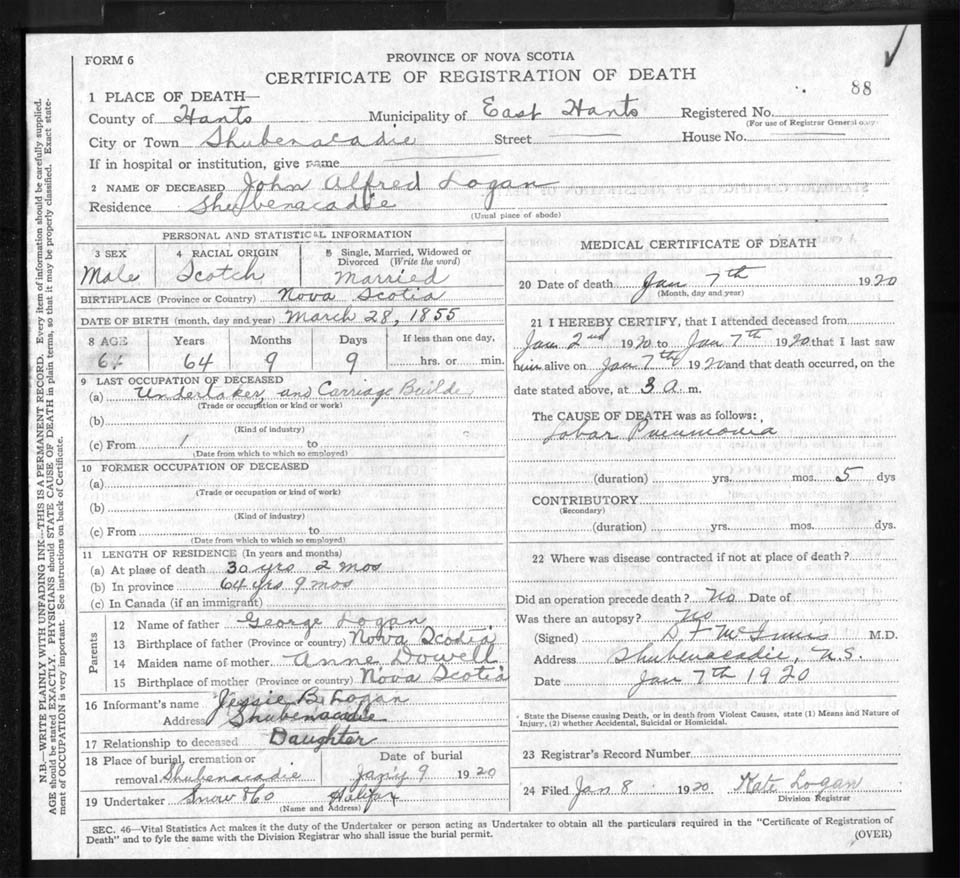 88
FORM 6
PROVINCE OF NOVA SCOTIA
CERTIFICATE OF REGISTRATION OF DEATH
1 PLACE OF DEATH—
County of Hants Municipality of East Hants Registered No.
(For use of Registrar General only)
City or Town Shubenacadie Street House No.
If in hospital or institution, give name
2 NAME OF DECEASED John Alfred Logan
Residence Shubenacadie
(Usual place of abode)
PERSONAL AND STATISTICAL INFORMATION
3 SEX 4 RACIAL ORIGIN 5 Single, Married, Widowed or Divorced (Write the word)
Male Scotch Married
BIRTHPLACE (Province or Country) Nova Scotia
DATE OF BIRTH (month, day and year) March 28, 1855
8 AGE Years Months Days If less than one day,
64 64 9 9 hrs. or min.
9 LAST OCCUPATION OF DECEASED
(a) Undertaker, and Carriage Builder
(Trade or occupation or kind or work)
(b)
(Kind of industry)
(c) From to
(Date from which to which so employed)
10 FORMER OCCUPATION OF DECEASED
(a)
(Trade or occupation or kind of work)
(b)
(Kind of industry)
(c) From to
(Date from which to which so employed)
11 LENGTH OF RESIDENCE (In years and months)
(a) At place of death 30 yrs 2 mos
(b) In province 64 yrs 9 mos
(c) In Canada (if an immigrant)
Parents
12 Name of father George Logan
13 Birthplace of father (Province or country) Nova Scotia
14 Maiden name of mother Anne Dowell
15 Birthplace of mother (Province or country) Nova Scotia
16 Informant's name Jessie B. Logan
Address Shubenacadie
17 Relationship to deceased Daughter
18 Place of burial, cremation or Date of burial
removal Shubenacadie Jan'y 9 1920
19 Undertaker Snow & Co Halifax
(Name and Address)
MEDICAL CERTIFICATE OF DEATH
20 Date of death Jan 7th 1920
(Month, day and year)
21 I HEREBY CERTIFY, that I attended deceased from
Jan 2nd 1920 to Jan 7th 1920 that I last saw
him alive on Jan 7th 1920 and that death occurred, on the
date stated above, at 3 a. m.
The CAUSE OF DEATH was as follows:
Lobar Pneumonia
(duration) yrs. mos. 5 dys
CONTRIBUTORY
(Secondary)
(duration) yrs. mos. dys.
22 Where was disease contracted if not at place of death?
Did an operation precede death? No Date of
Was there an autopsy? No
(Signed) D F McInnis M.D.
Address Shubenacadie, N.S.
Date Jan 7th 1920
State the Disease causing Death, or in death from Violent Causes, state (1) Means and Nature of
Injury, (2) whether Accidental, Suicidal or Homicidal.
23 Registrar's Record Number
24 Filed Jan 8 1920 Kate Logan
Division Registrar
SEC. 46—Vital Statistics Act makes it the duty of the Undertaker or person acting as Undertaker to obtain all the particulars required in the "Certificate of Registration of
Death" and to fyle the same with the Division Registrar who shall issue the burial permit. (OVER)
N.B.—WRITE PLAINLY WITH UNFADING INK—THIS IS A PERMANENT RECORD. Every item of information should be carefully supplied.
AGE should be stated EXACTLY. PHYSICIANS should STATE CAUSE OF DEATH in plain terms, so that it may be properly classified. Exact state-
ment of OCCUPATION is very important. See instructions on back of Certificate.